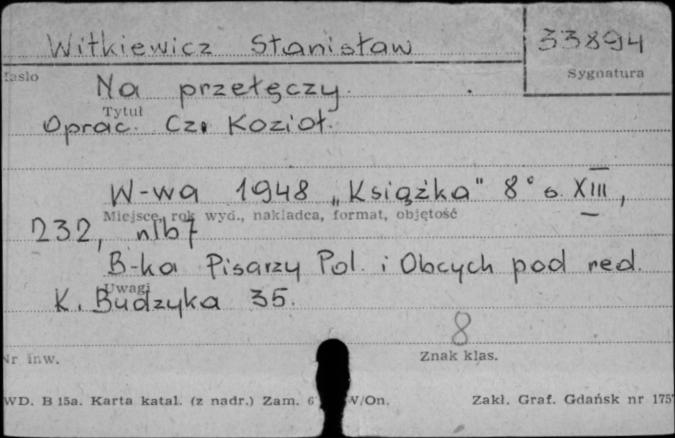 Witkiewicz Stanisław 33894
Hasło Sygnatura
Na przełęczy.
Tytuł
Oprac. Cz. Kozioł.
W-wa 1948 „Książka" 8° s. XIII,
Miejsce, rok wyd., nakładca, format, objętość
232, nlb 7
B-ka Pisarzy Pol. i Obcych pod red.
Uwagi
K. Budzyka 35.
8
Nr inw. Znak klas.
WD. B 15a. Karta katal. (z nadr.) Zam. 6 W/On. Zakł. Graf. Gdańsk nr 175